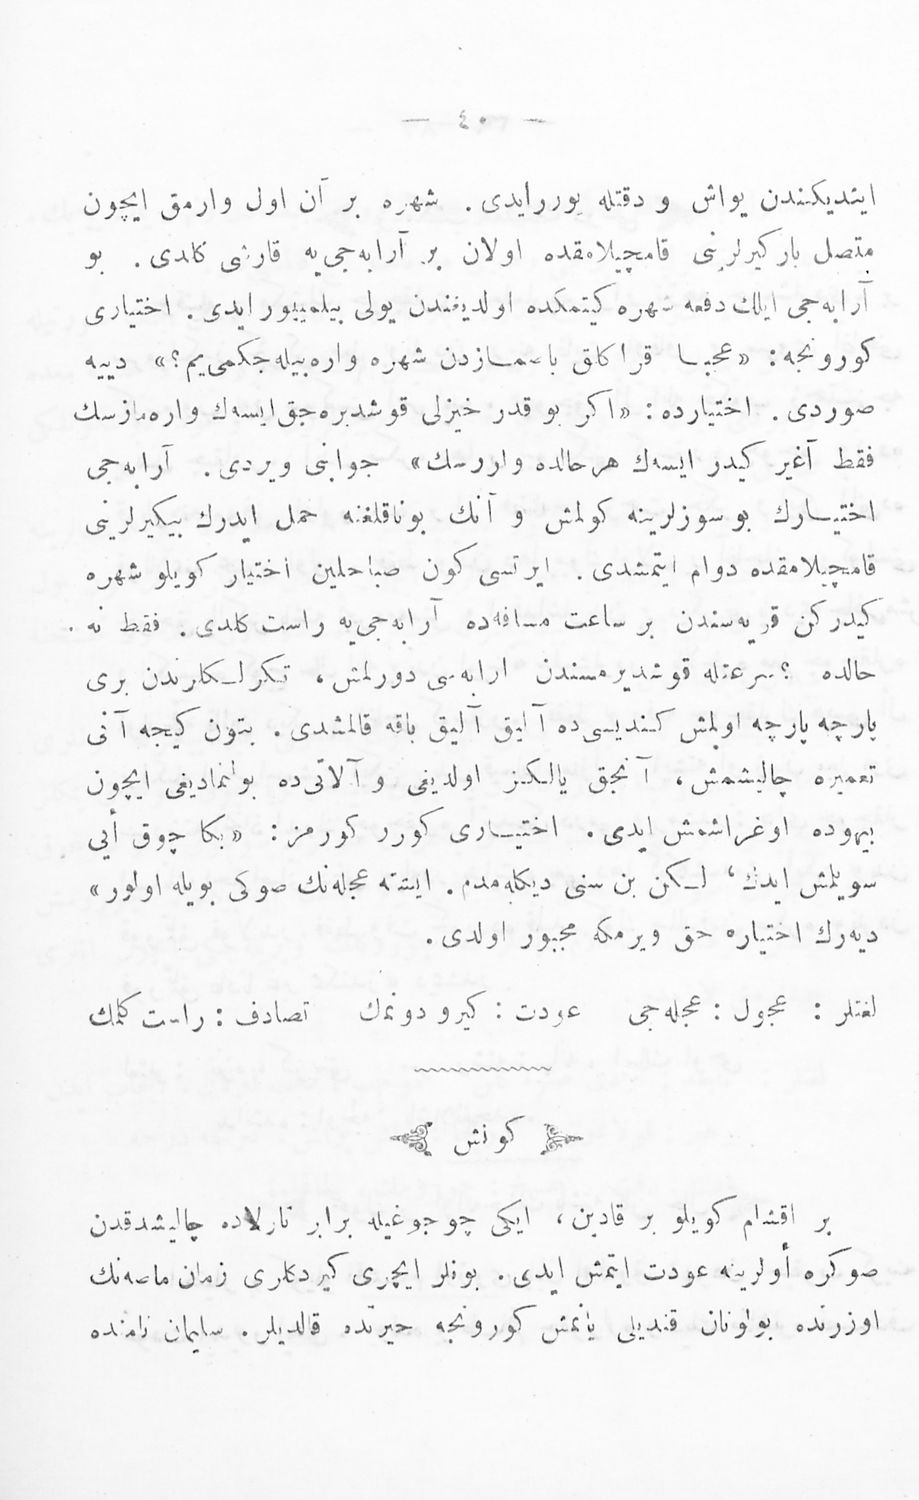 — ٤٠ —
ایتدیكندن یواش و دقتله یوررایدی. شهره بر آن اول وارمق ایچون
متصل بارگیرلرینی قامچیلامقده اولان بر آرابه‌جی‌یه قارشی كلدی. بو
آرابه‌جی ایلك دفعه شهره كیتمكده اولدیغندن یولی بیلمییور ایدی. اختیاری
كورونجه: «عجبا قراكلق باصمازدن شهره واره‌بیله‌جكمی‌یم؟» دییه
صوردی. اختیارده: «اكر بو قدر خیزلی قوشدیره‌جق‌ایسه‌ك واره‌مازسك
فقط آغیر كیدر ایسه‌ك هرحالده واررسك» جوابنی ویردی. آرابه‌جی
اختیارك بو سوزلرینه كولمش و آنك بوناقلغنه حمل ایدرك بیكیرلرینی
قامچیلامقده دوام ایتمشدی. ایرتسی كون صباحلین اختیار كویلو شهره
كیدركن قریه‌سندن بر ساعت مسافه‌ده آرابه‌جی‌یه راست كلدی. فقط نه
حالده ؟ سرعتله قوشدیرمسندن ارابه‌سی دورلمش، تكرلكلرندن بری
پارچه پارچه اولمش كندیسی‌ده آلیق آلیق باقه قالمشدی. بتون كیجه آنی
تعمیره چالیشمش، آنجق یالكز اولدیغی و آلاتی‌ده بولنمادیغی ایچون
بیهوده اوغراشمش ایدی. اختیاری كورر كورمز: «بكا چوق أیی
سویلمش ایدك، لكن بن سنی دیكله‌مدم. ایشته عجله‌نك صوكی بویله اولور»
دیه‌رك اختیاره حق ویرمكه مجبور اولدی.
لغتلر : عجول : عجله‌جی عودت : كیرو دونمك تصادف : راست كلمك
كونش
بر اقشام كویلو بر قادین، ایكی چوجوغیله برابر تارلاده چالیشدقدن
صوكره أولرینه عودت ایتمش ایدی. بونلر ایچری كیردكلری زمان ماصه‌نك
اوزرنده بولونان قندیلی یانمش كورونجه حیرتده قالدیلر. سلیمان نامنده